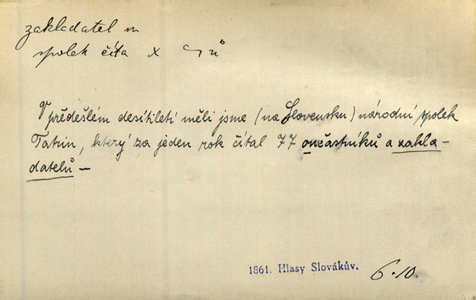 zakladatel m
spolek čítá x ců
V předešlém desítiletí měli jsme (na Slovensku) národní spolek
Tatrin, který za jeden rok čítal 77 oučastníků a zakla-
datelů —
1861. Hlasy Slovákův. 6·10.